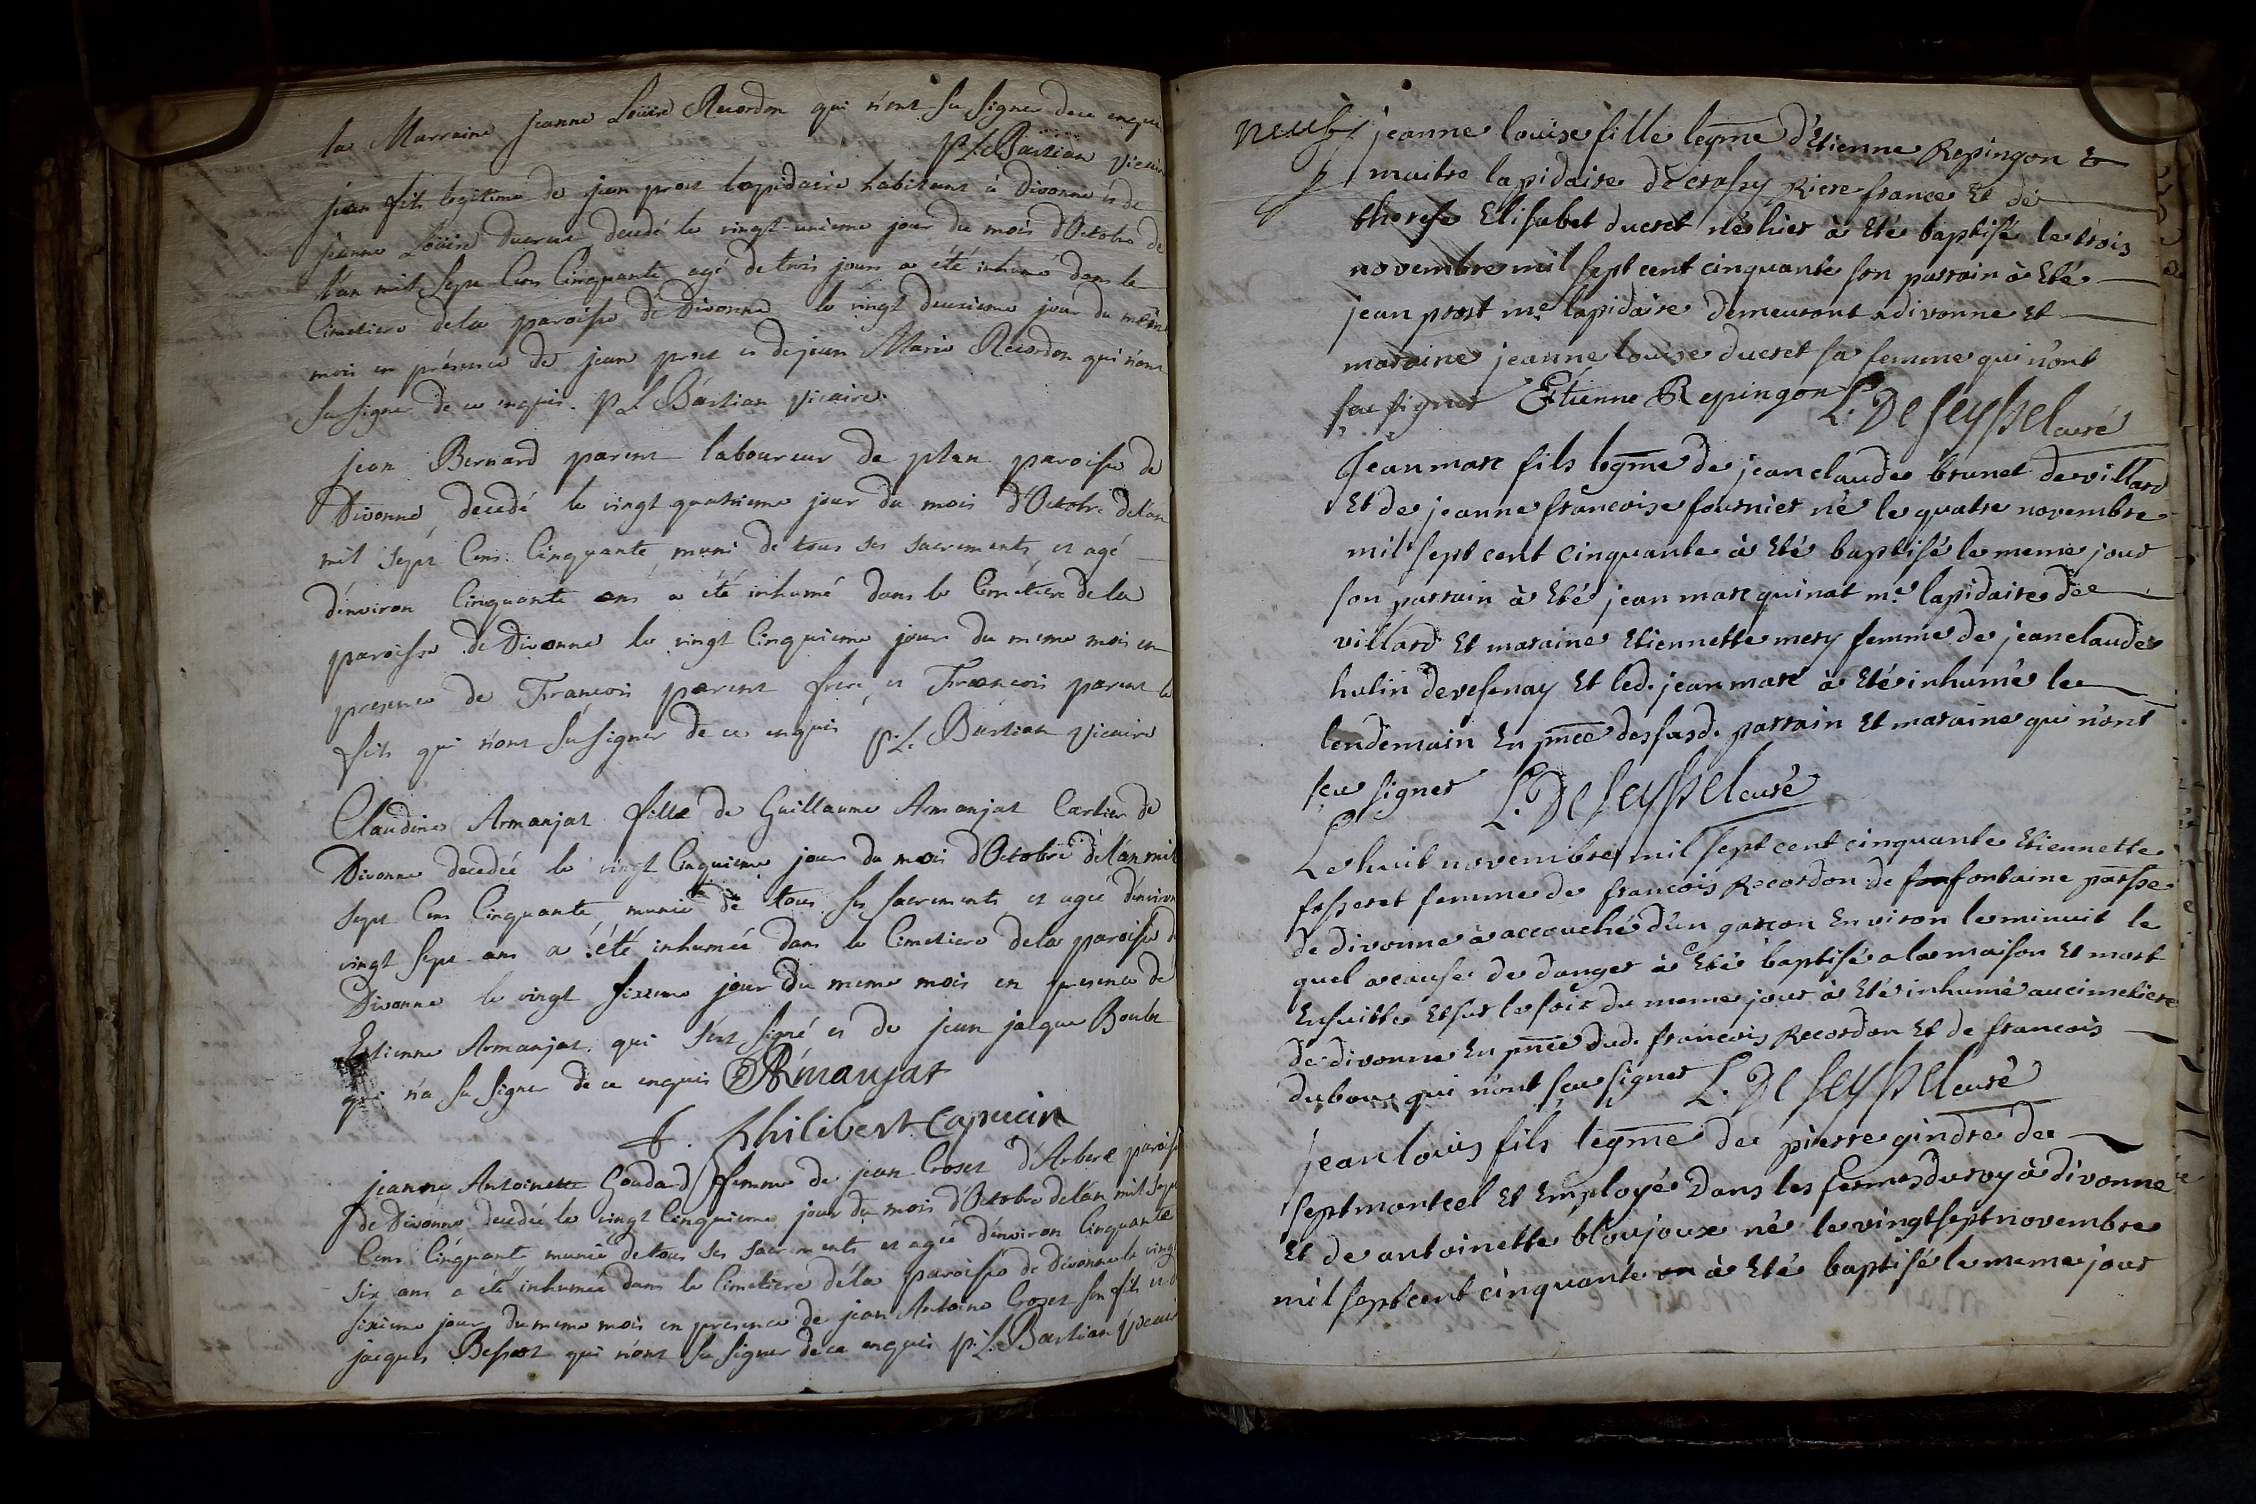 la Marraine jeanne Louise Recordon qui n'ont su signer de ce enquis
p.L. Bastian vicaire
jean fils legitime de jean prost lapidaire habitant à Divonne et de
jeanne Louise ducret decedé le vingt-unieme jour du mois d'Octobre de
l'an mil sept Cens Cinquante agé de trois jours a été inhumé dans le
Cimetiere de la paroisse de Divonne le vingt deuxieme jour du même
mois en présence de jean prost et de jean Marie Recordon qui n'ont
su signer de ce enquis. p.L. Bastian vicaire.
jean Bernard parent laboureur de plan paroisse de
Divonne, decedé le vingt quatrieme jour du mois d'Octobre de l'an
mil sept Cens Cinquante, muni de tous ses sacrements, et agé
d'environ Cinquante ans a été inhumé dans le Cimetiere de la
paroisse de Divonne le vingt Cinquieme jour du meme mois en
presence de François parent frere, et François parent le
fils qui n'ont su signer de ce enquis p.L. Bastian vicaire
Claudine Armanjat fille de Guillaume Armanjat Cartier de
Divonne decedée le vingt Cinquieme jour du mois d'Octobre de l'an mil
sept Cens Cinquante, munie de tous ses sacrements et agée d'environ
vingt sept ans a été inhumée dans le Cimetiere de la paroisse de
Divonne le vingt sixieme jour du meme mois en presence de
Estienne Armanjat qui s'est signé et de jean jacque
qui n'a su signer de ce enquis Armanjat
f. philibert Capucin
jeanne Antoinette Goudard femme de jean Croset d'Arbere paroisse
de Divonne decedée le vingt Cinquieme jour du mois d'Octobre de l'an mil sept
Cens Cinquante munie de tous ses sacrements et agée d'environ Cinquante
six ans a été inhumée dans le Cimetiere de la paroisse de divonne le vingt
sixieme jour du meme mois en presence de jean Antoine Croset son fils et de
jacques qui n'ont su signer de ce enquis p.L. Bastian vicaire
jeanne louise fille legme d'Etienne Repingon &
maitre lapidaire de crassy Riere france Et de
therese Elisabet ducret née hier à Eté baptisé le trois
novembre mil sept cent cinquante son parrain à Eté
jean prost me lapidaire demeurant a divonne Et
maraine jeanne louise ducret sa femme qui n'ont
seu signer Etienne Repingon L. De seyssel curé
Jean marc fils legme de jean claude brunet de villard
Et de jeanne francoise fournier né le quatre novembre
mil sept cent cinquante à Eté baptisé le meme jour
son parrain à Eté jean marc quinat me lapidaire de
villard Et maraine Etiennette mery femme de jean claude
hulin de vesenay Et led. jean marc à Eté inhumé le
lendemain En pnce des susd. parrain Et maraine qui n'ont
seu signer L. De seyssel curé
Le huit novembre mil sept cent cinquante Etiennette
fosseret femme de francois Recordon de fontaine parsse
de divonne à accouché d'un garcon Environ le minuit le
quel a cause de danger à Eté baptisé a la maison Et mort
Ensuitte Et sur le soir du meme jour à Eté inhumé au cimetiere
de divonne En pnce dud. francois Recordon Et de francois
dubou qui n'ont seu signer L. De seyssel curé
jean louis fils legme de pierre gindre de
septmoncel Et Employé dans les fermes du roy à divonne
Et de antoinette né le vingt sept novembre
mil sept cent cinquante à Eté baptisé le meme jour